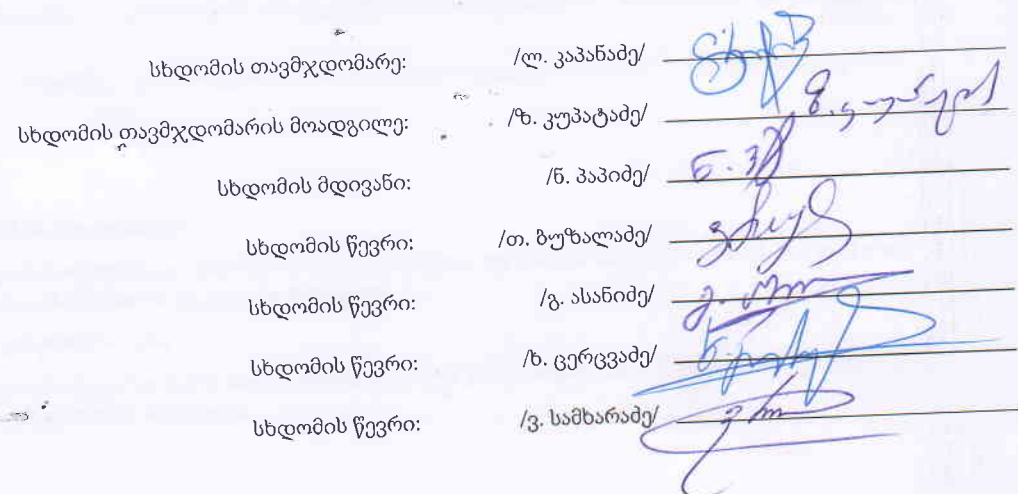 სხდომის თავმჯდომარე: /ლ. კაპანაძე/
სხდომის თავმჯდომარის მოადგილე: /ზ. კუპატაძე/
სხდომის მდივანი: /ნ. პაპიძე/
სხდომის წევრი: /თ. ბუზალაძე/
სხდომის წევრი: /გ. ასანიძე/
სხდომის წევრი: /ხ. ცერცვაძე/
სხდომის წევრი: /ვ. სამხარაძე/